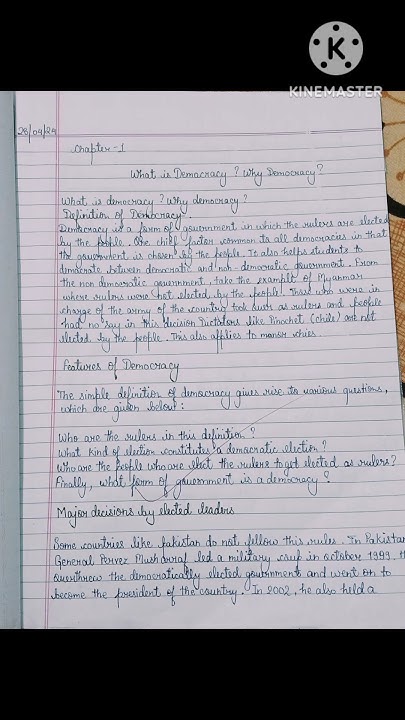 KINEMASTER
28/09/24
Chapter-1
What is Democracy? Why Democracy?
What is democracy? Why democracy?
Definition of Democracy
Democracy is a form of government in which the rulers are elected
by the people. One chief factor common to all democracies in that
the government is chosen by the people. It also helps students to
democrate between democratic and non-democratic government. From
the non democratic government, take the example of Myanmar
where rulers were not elected by the people. Those who were in
charge of the army of the country took such as rulers and people
had no say in this decision Dictators like Pinochet (chile) are not
elected by the people. This also applies to
Features of Democracy
The simple definition of democracy gives rise to various questions,
which are given below:
Who are the rulers in this definition?
What kind of election constitutes a democratic election?
Who are the people who are elect the rulers to get elected as rulers?
Finally, what form of government is a democracy?
Major decisions by elected leaders
Some countries like pakistan do not fellow this rules. In Pakistan
General Pervez Musharraf led a military coup in october 1999.
overthrew the democratically elected governments and went on to
become the president of the country. In 2002, he also held a